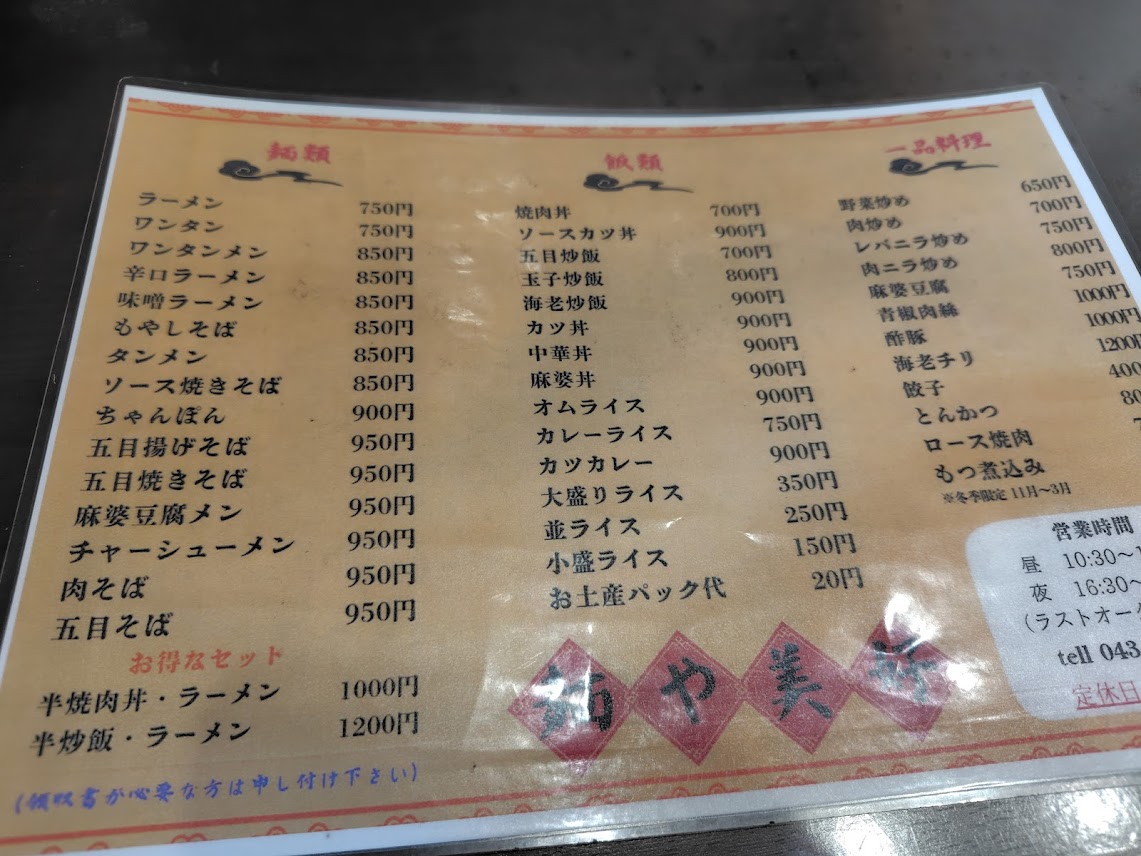 麺類
ラーメン 750円
ワンタン 750円
ワンタンメン 850円
辛口ラーメン 850円
味噌ラーメン 850円
もやしそば 850円
タンメン 850円
ソース焼きそば 850円
ちゃんぽん 900円
五目揚げそば 950円
五目焼きそば 950円
麻婆豆腐メン 950円
チャーシューメン 950円
肉そば 950円
五目そば 950円
お得なセット
半焼肉丼・ラーメン 1000円
半炒飯・ラーメン 1200円
(領収書が必要な方は申し付け下さい)
飯類
焼肉丼 700円
ソースカツ丼 900円
五目炒飯 700円
玉子炒飯 800円
海老炒飯 900円
カツ丼 900円
中華丼 900円
麻婆丼 900円
オムライス 900円
カレーライス 750円
カツカレー 900円
大盛りライス 350円
並ライス 250円
小盛ライス 150円
お土産パック代 20円
麺や美
一品料理
野菜炒め 650円
肉炒め 700円
レバニラ炒め 750円
肉ニラ炒め 800円
麻婆豆腐 750円
青椒肉絲 1000円
酢豚 1000円
海老チリ 1200円
餃子 400
とんかつ 80
ロース焼肉
もつ煮込み
※冬季限定 11月～3月
営業時間
昼 10:30～
夜 16:30～
(ラストオー
tell 043
定休日